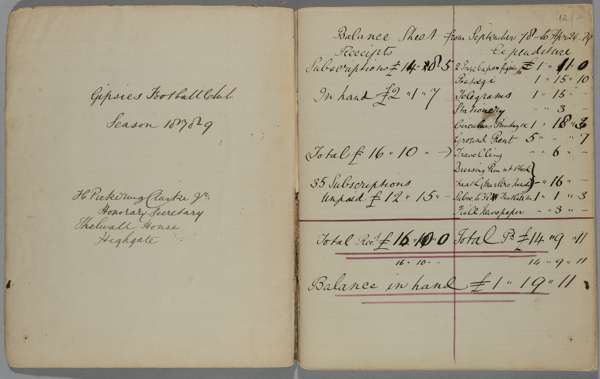 Gipsies Football Club
Season 1878 & 9
H Pickering Clarke Jr.
Honorary Secretary
Thelwall House
Highgate
Balance Sheet from September 78 to Apr 24 79
Receipts
Subscriptions £14 " 8 "
In hand £2 " 1 " 7
Total £ 16 " 10 " -
35 Subscriptions
Unpaid £ 12 " 15 " -
Total Rec £ 16 " 10 " 0
16 " 10 " -
Balance in hand £ 1 " 19 " 11
Expenditure
£ 1 " 11 0
Postage 1 " 15 " 10
Telegrams 1 " 15 " -
Stationery " 3 " -
Circular Printing 1 " 18 " 3
Ground Rent 5 " " 7
Travelling " 6 " -
Dressing Room
" 16 " -
1 " 1 " 3
Newspaper " 3 " -
Total Pd £ 14 " 9 " 11
14 " 9 " 11